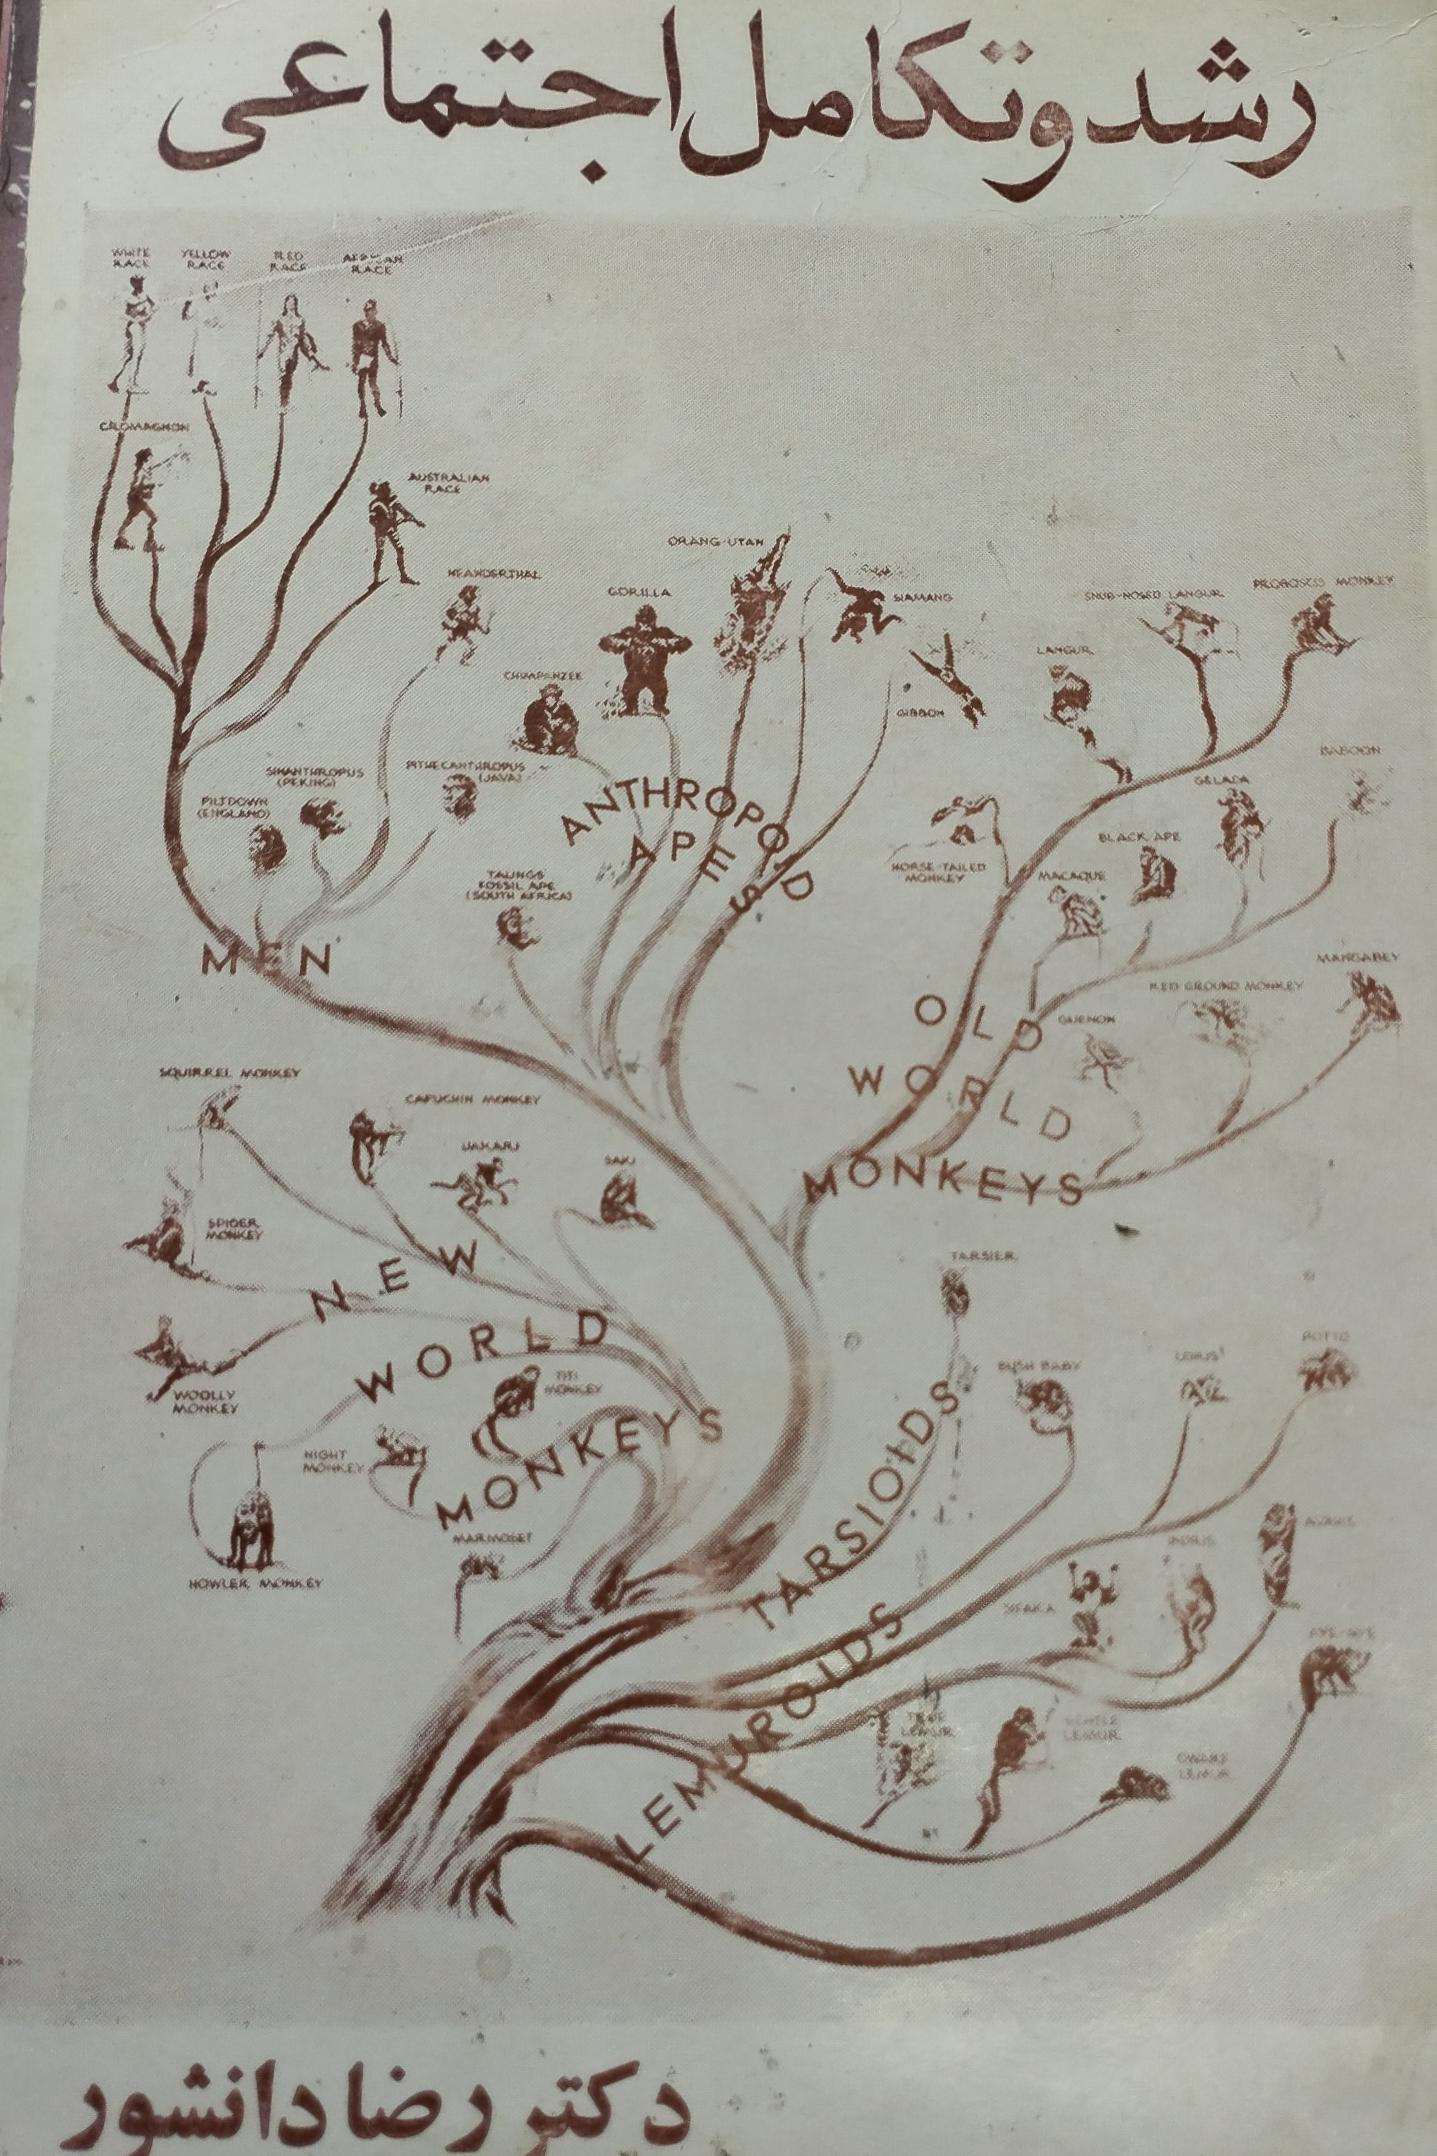 رشد و تکامل اجتماعی
WHITE RACE
YELLOW RACE
RED RACE
AFRICAN RACE
CROMAGNON
AUSTRALIAN RACE
NEANDERTHAL
ORANG-UTAN
GORILLA
SIAMANG
SNUB-NOSED LANGUR
PROBOSCIS MONKEY
CHIMPANZEE
LANGUR
GIBBON
BABOON
SINANTHROPUS (PEKING)
PITHECANTHROPUS (JAVA)
GELADA
PILTDOWN (ENGLAND)
ANTHROPOID APES
BLACK APE
HORSE-TAILED MONKEY
MACAQUE
TAUNGS FOSSIL APE (SOUTH AFRICA)
MEN
MANGABEY
RED GROUND MONKEY
OLD WORLD MONKEYS
GUENON
SQUIRREL MONKEY
CAPUCHIN MONKEY
UAKARI
SAKI
SPIDER MONKEY
NEW WORLD MONKEYS
TARSIER
WOOLLY MONKEY
TITI MONKEY
BUSH BABY
LORIS
POTTO
NIGHT MONKEY
MARMOSET
HOWLER MONKEY
TARSIOIDS
INDRIS
AVAHIS
SIFAKA
AYE-AYE
LEMUROIDS
TRUE LEMUR
GENTLE LEMUR
DWARF LEMUR
دکتر رضا دانشور